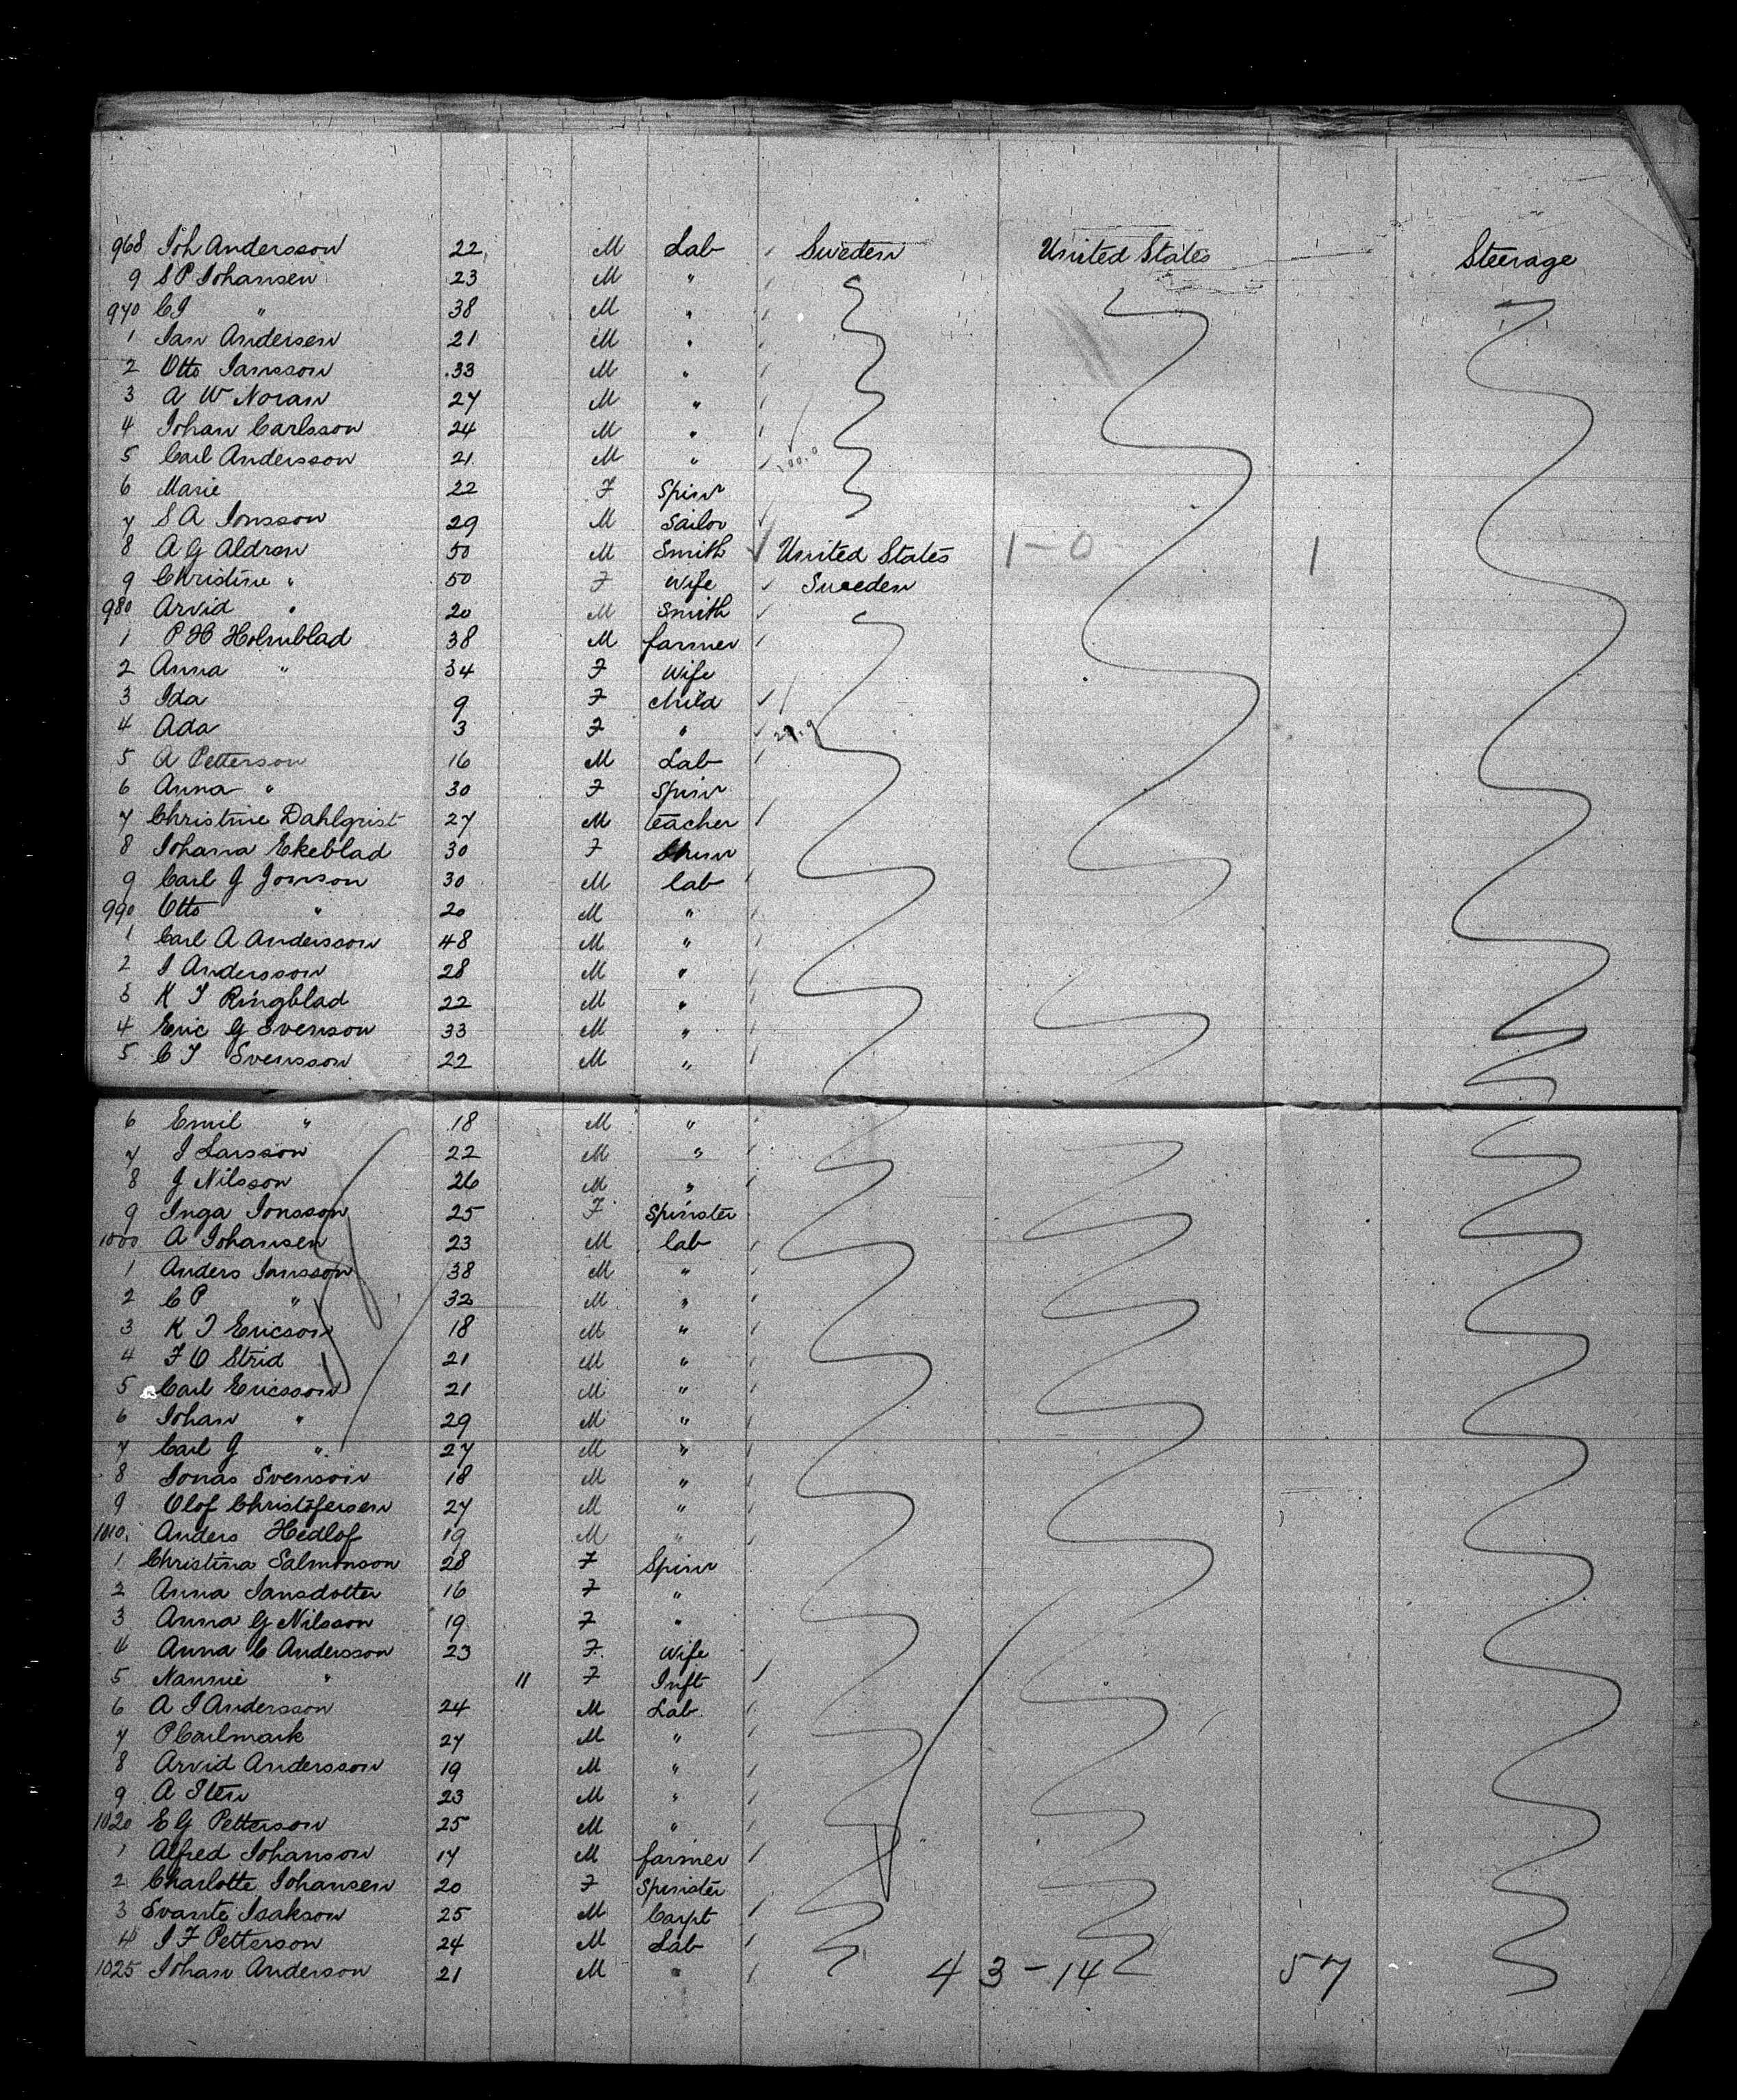 968 Joh Andersson 22 M Lab Sweden United States Steerage
9 S P Johansen 23 M "
970 C J " 38 M "
1 Jan Andersen 21 M "
2 Otto Jansson 33 M "
3 A W Noran 27 M "
4 Johan Carlsson 24 M "
5 Carl Andersson 21 M "
6 Marie 22 F Spin
7 S A Jonsson 29 M Sailor
8 A G Aldron 50 M Smith United States 1-0 1
9 Christine " 50 F Wife Sweden
980 Arvid " 20 M Smith
1 P H Holmblad 38 M farmer
2 Anna " 34 F Wife
3 Ida 9 F child
4 Ada 3 F "
5 A Petterson 16 M Lab
6 Anna " 30 F Spin
7 Christine Dahlqrist 27 M teacher
8 Johana Ekeblad 30 F Spin
9 Carl G Jonson 30 M lab
990 Otto " 20 M "
1 Carl A Andersson 48 M "
2 J Andersson 28 M "
3 K J Ringblad 22 M "
4 Eric G Svenson 33 M "
5 C J Svensson 22 M "
6 Emil " 18 M "
7 J Larsson 22 M "
8 J Nilsson 26 M "
9 Inga Jonsson 25 F Spinster
1000 A Johansen 23 M lab
1 Anders Jansson 38 M "
2 C P " 32 M "
3 K J Ericson 18 M "
4 F O Strid 21 M "
5 Carl Ericsson 21 M "
6 Johan " 29 M "
7 Carl G " 27 M "
8 Jonas Svenson 18 M "
9 Olof Christofersen 27 M "
1010 Anders Hedlof 19 M "
1 Christina Salmonson 28 F Spin
2 Anna Jansdotter 16 F "
3 Anna G Nilsson 19 F "
4 Anna C Andersson 23 F Wife
5 Nannie " 11 F Inft
6 A J Andersson 24 M Lab
7 P Carlmark 27 M "
8 Arvid Andersson 19 M "
9 A Sten 23 M "
1020 E G Petterson 25 M "
1 Alfred Johanson 17 M farmer
2 Charlotte Johansen 20 F Spinster
3 Svante Isakson 25 M Carpt
4 J F Petterson 24 M Lab
1025 Johan Anderson 21 M " 43-14 57